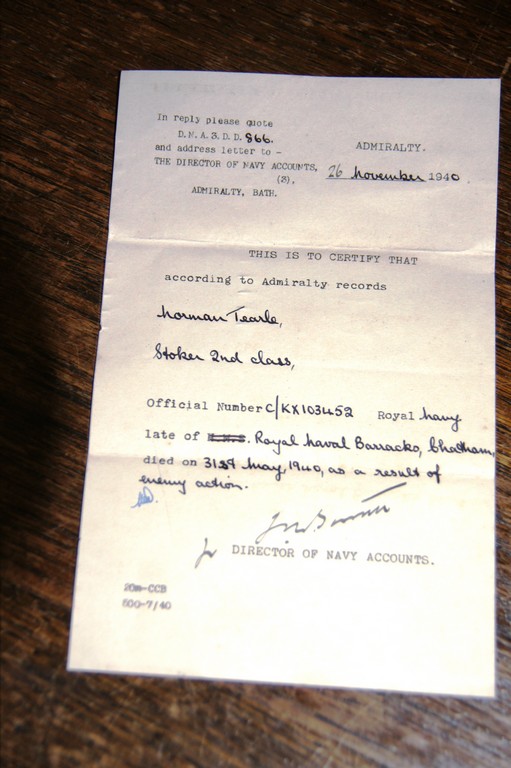 In reply please quote
D.N.A.3.D.D. 866.
and address letter to -
THE DIRECTOR OF NAVY ACCOUNTS,
(3),
ADMIRALTY, BATH.
ADMIRALTY.
26 November 1940
THIS IS TO CERTIFY THAT
according to Admiralty records
Norman Tearle,
Stoker 2nd class,
Official Number C/KX103452 Royal Navy
late of Royal Naval Barracks, Chatham,
died on 31st May, 1940, as a result of
enemy action.
DIRECTOR OF NAVY ACCOUNTS.
20m-CCB
500-7/40